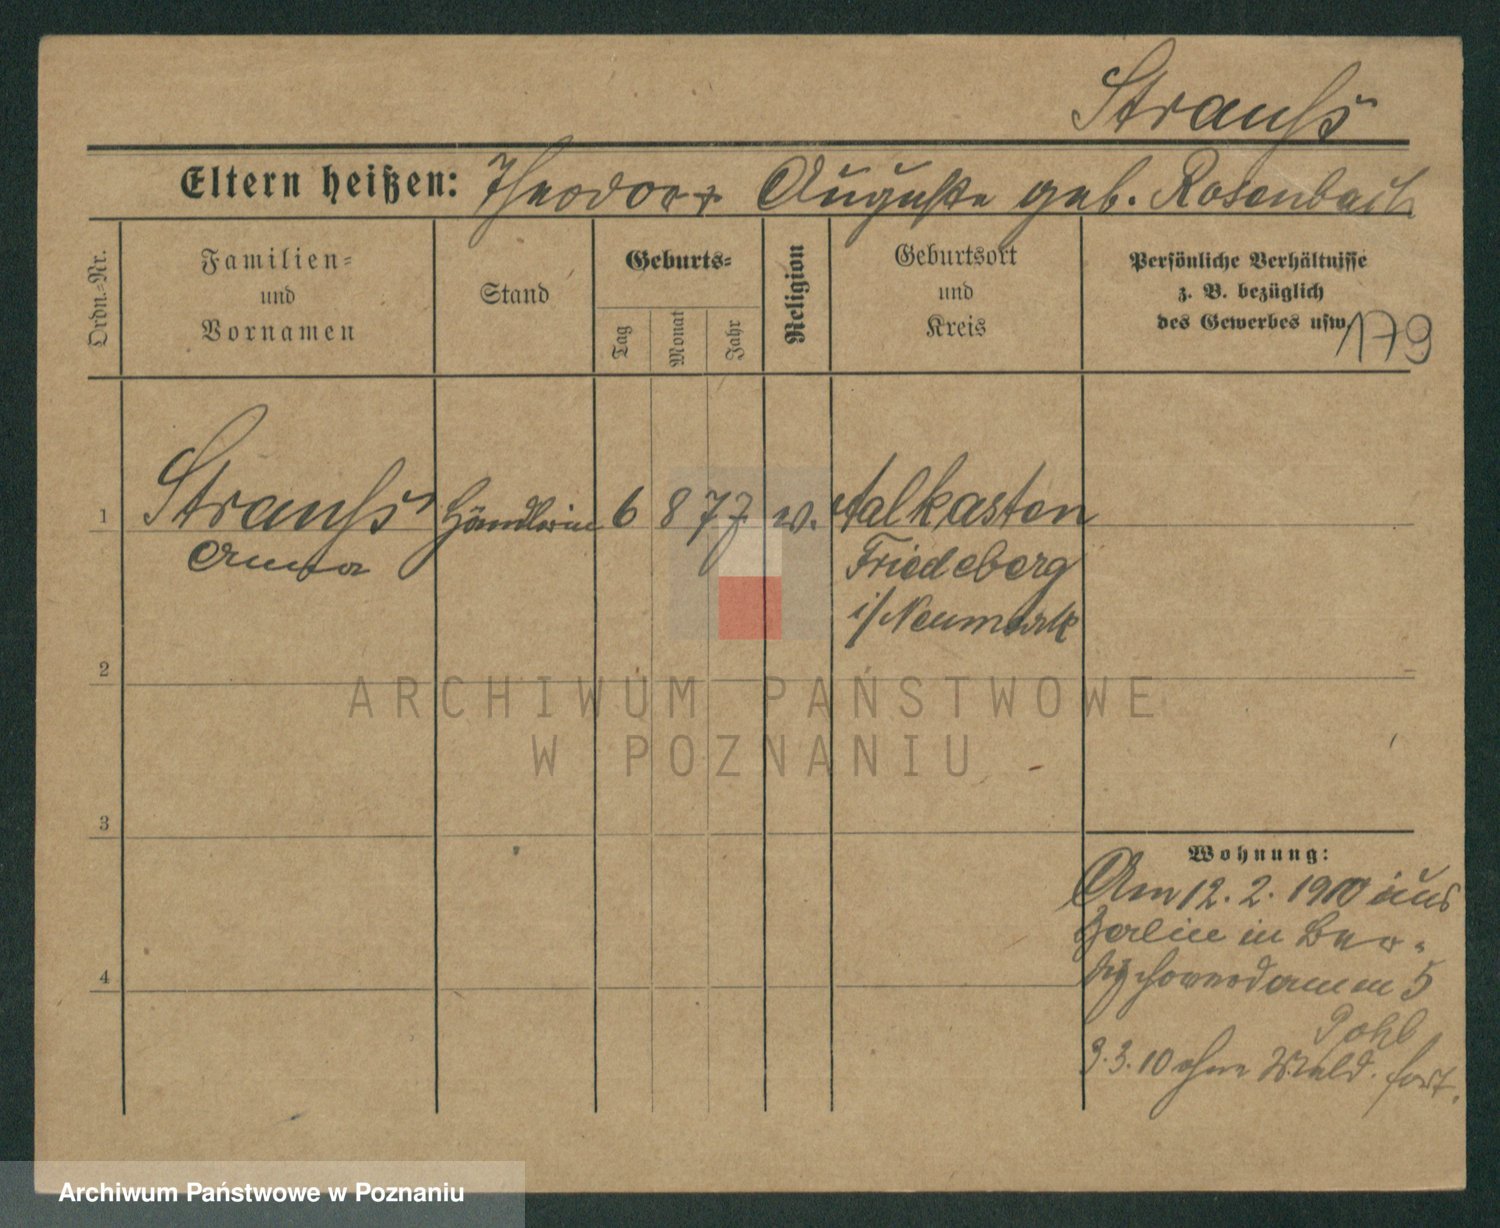 Strauß
Eltern heißen: Theodor Auguste geb. Rosenbach
Ordn.-Nr.
Familien-
und
Vornamen
Stand
Geburts-
Tag
Monat
Jahr
Religion
Geburtsort
und
Kreis
Persönliche Verhältnisse
z. B. bezüglich
des Gewerbes usw.
179
1
Strauß Händlerin 6 8 77 Altkasten
Anna
Friedeberg
i/Neumark
2
3
4
Wohnung:
Am 12.2.1910 aus
Berlin in Ber-
dychowerdamm 5
Pohl
3.10 ohne Meld. fort.
ARCHIWUM PAŃSTWOWE
W POZNANIU
Archiwum Państwowe w Poznaniu